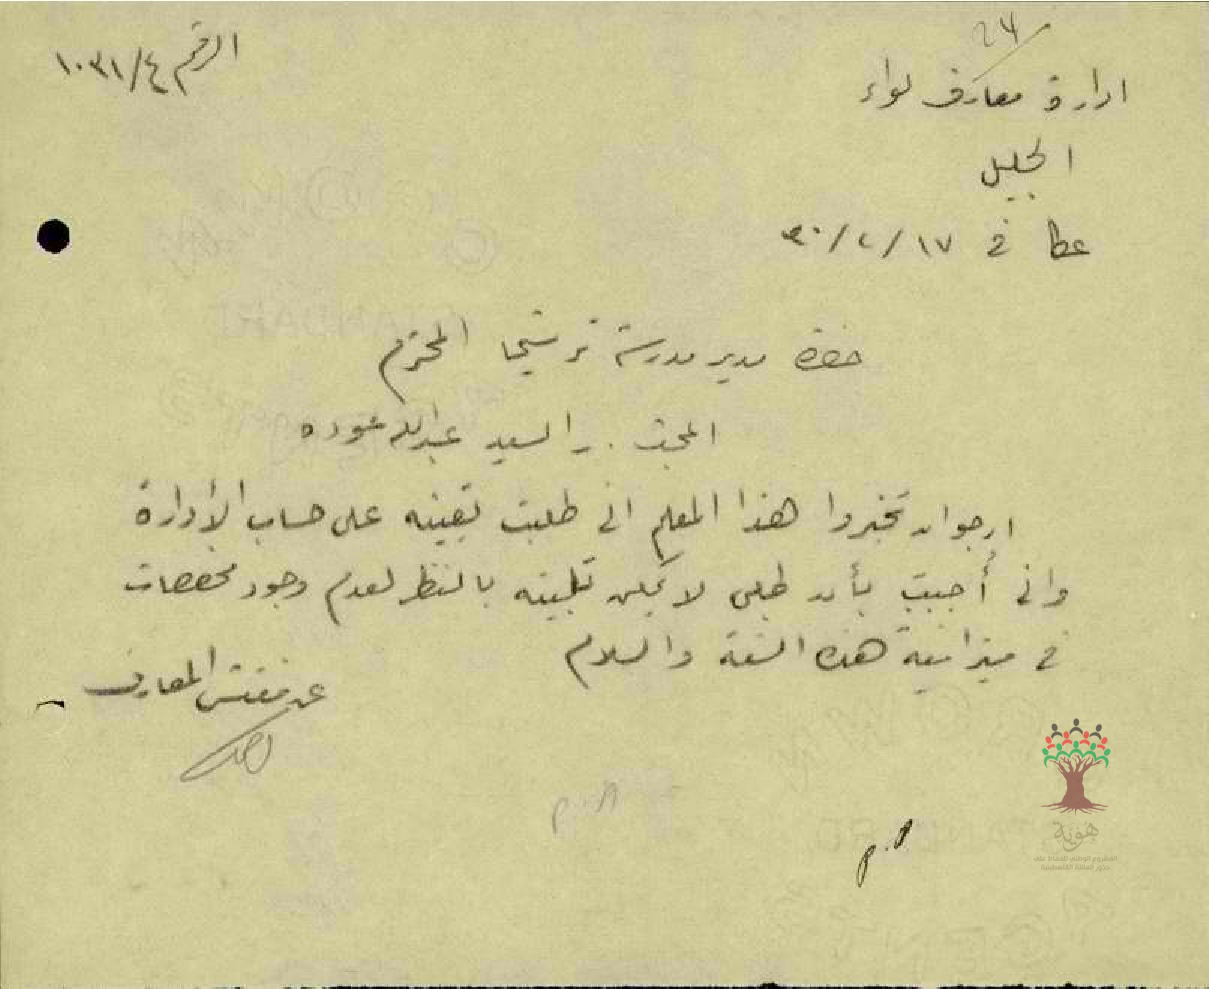 ٢٤
الرقم ١٠٣١/٤
ادارة معارف لواء
الجليل
عكا في ١٧/٢/٣٠
حضرة مدير مدرسة ترشيحا المحترم
المبحث . السيد عبدالله عوده
ارجو ان تخبروا هذا المعلم اني طلبت تعيينه على حساب الإدارة
واني أُجبت بأن طلبي لا يمكن تلبيته بالنظر لعدم وجود مخصصات
في ميزانية هذه السنة والسلام
عن مفتش المعارف
هوية
المشروع الوطني للحفاظ على
جذور العائلة الفلسطينية